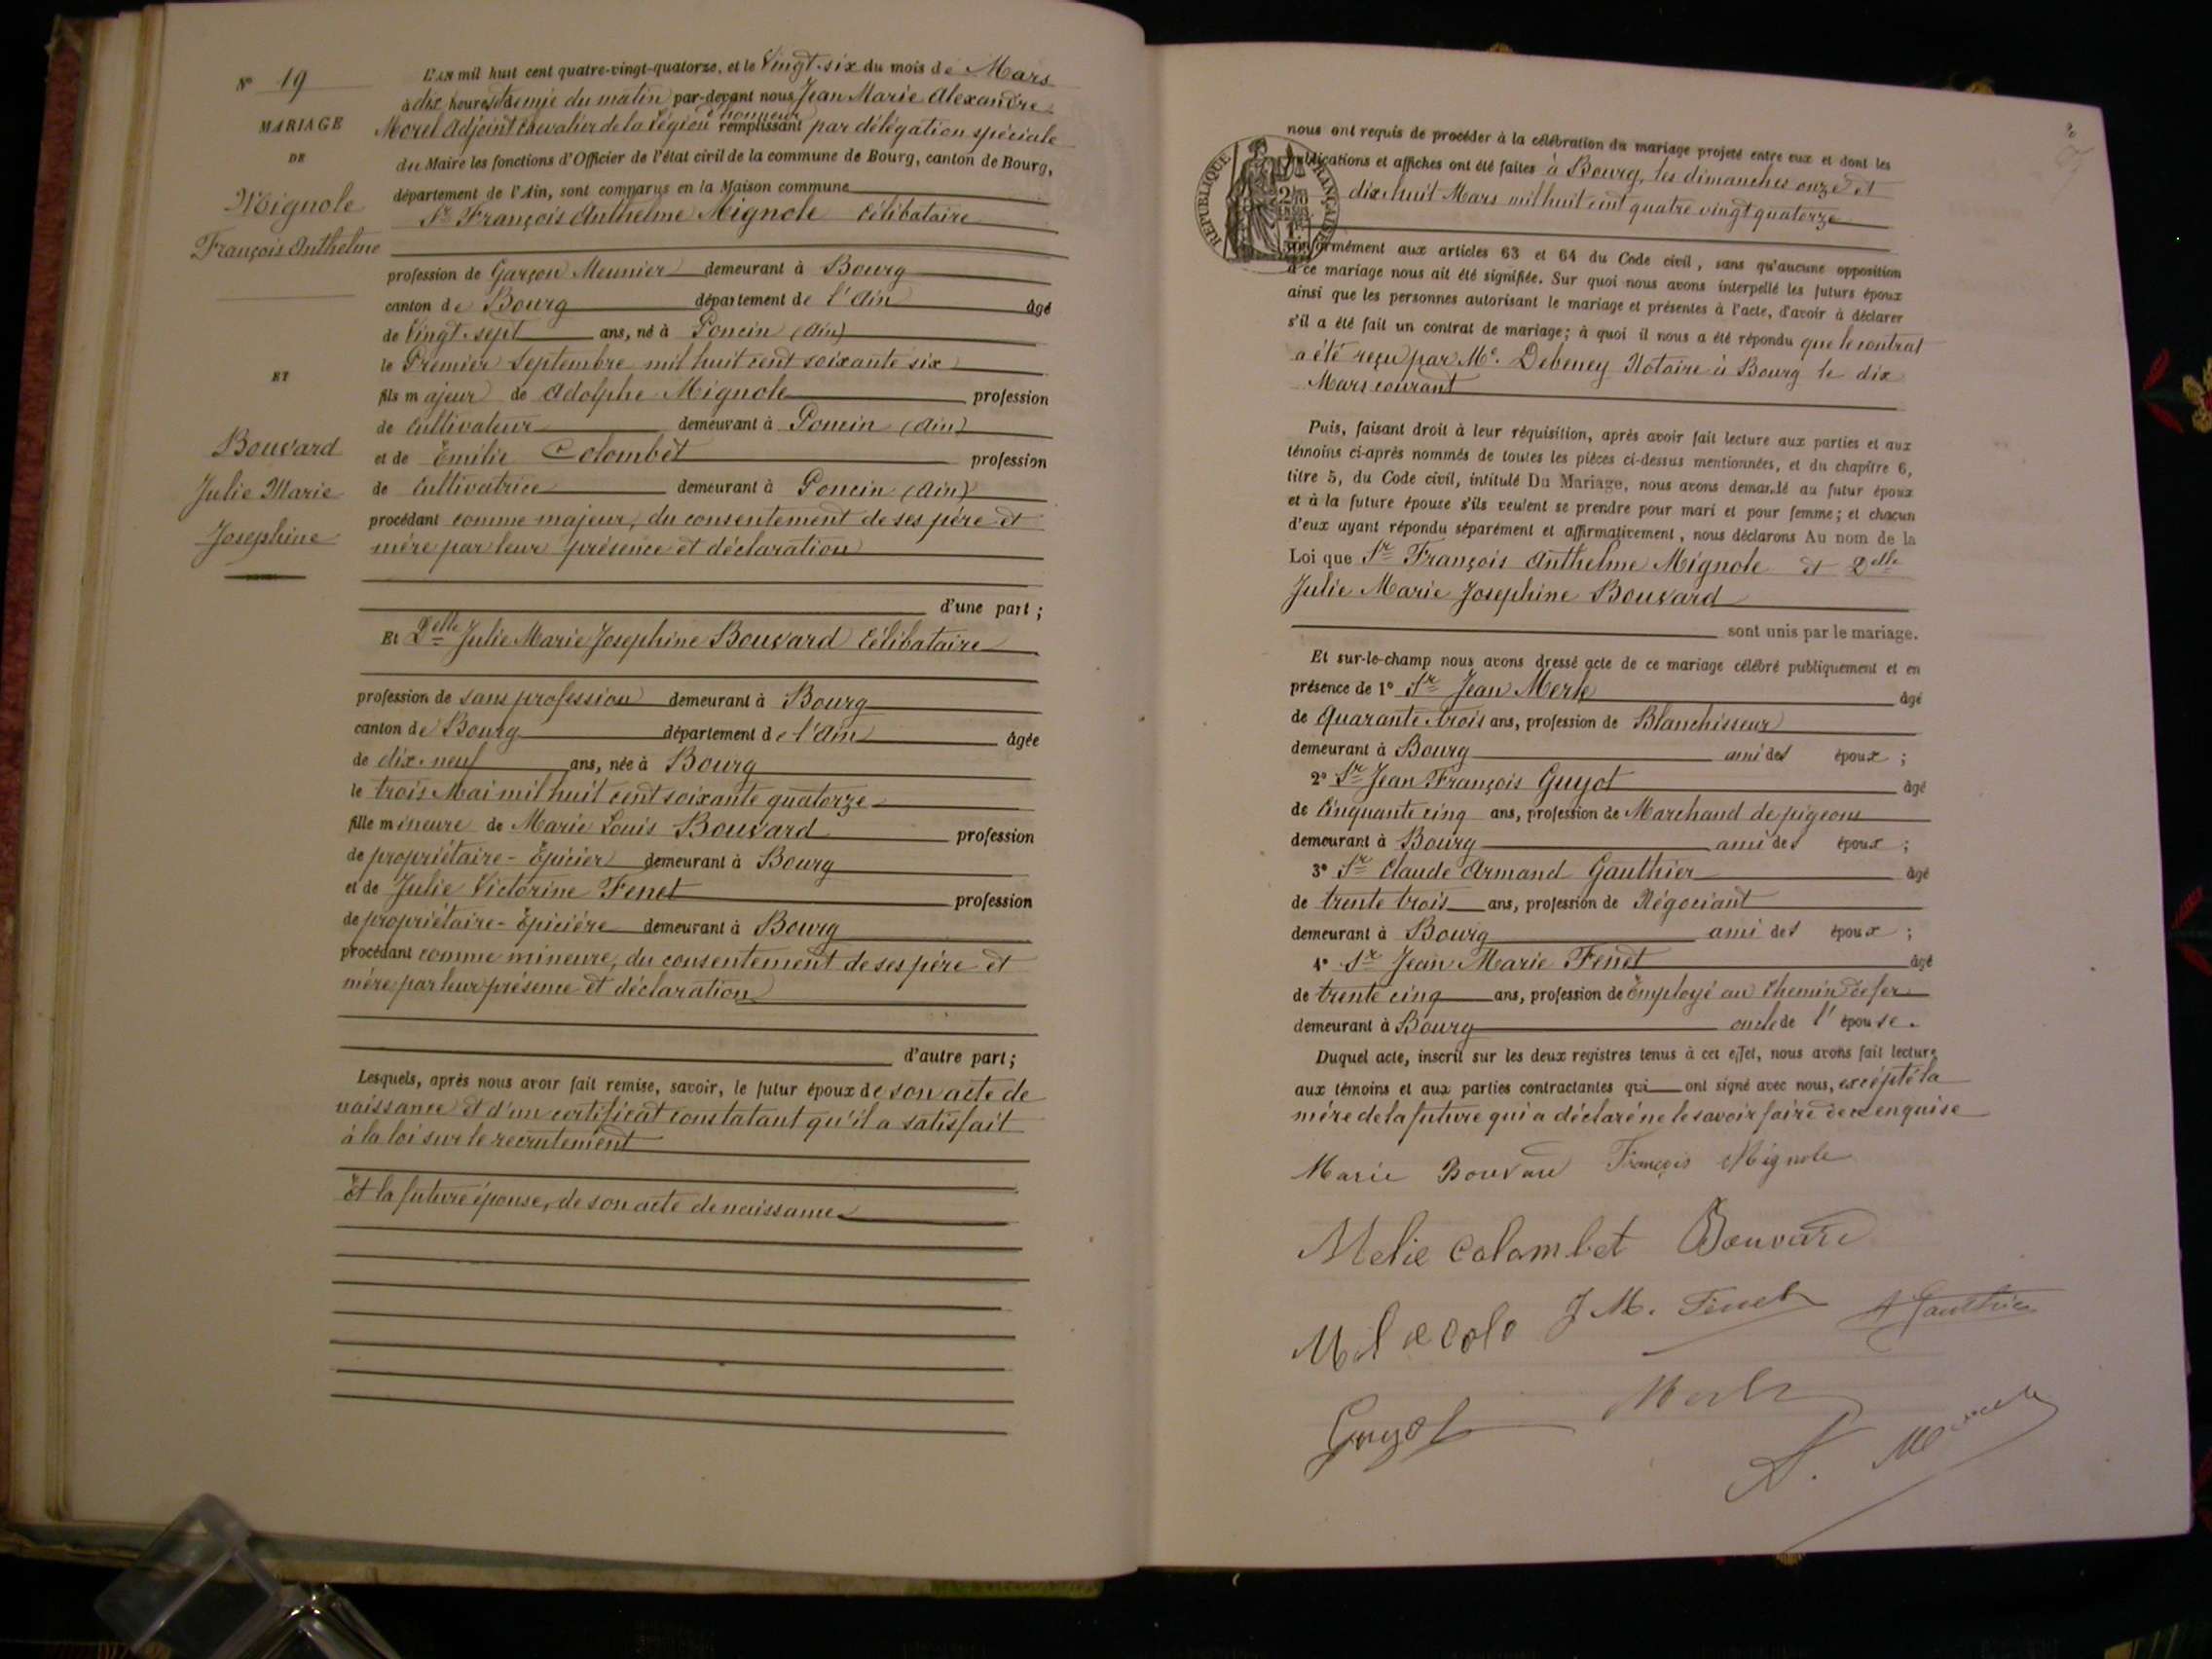 N° 19
MARIAGE
DE
Mignole
François Anthelme
ET
Bouvard
Julie Marie
Josephine
L'AN mil huit cent quatre-vingt-quatorze, et le Vingt-six du mois de Mars
à dix heures et demie du matin par-devant nous Jean Marie Alexandre
Morel Adjoint Chevalier de la Légion d'honneur remplissant par délégation spéciale
du Maire les fonctions d'Officier de l'état civil de la commune de Bourg, canton de Bourg,
département de l'Ain, sont comparus en la Maison commune
Sr François Anthelme Mignole célibataire
profession de Garçon Meunier demeurant à Bourg
canton de Bourg département de l'Ain âgé
de Vingt-sept ans, né à Poncin (Ain)
le Premier Septembre mil huit cent soixante six
fils majeur de Adolphe Mignole profession
de Cultivateur demeurant à Poncin (Ain)
et de Emilie Colombet profession
de Cultivatrice demeurant à Poncin (Ain)
procédant comme majeur, du consentement de ses père et
mère par leur présence et déclaration
d'une part ;
Et Delle Julie Marie Josephine Bouvard Célibataire
profession de sans profession demeurant à Bourg
canton de Bourg département de l'Ain âgée
de dix-neuf ans, née à Bourg
le trois Mai mil huit cent soixante quatorze
fille mineure de Marie Louis Bouvard profession
de propriétaire-Epicier demeurant à Bourg
et de Julie Victorine Fenet profession
de propriétaire-Epicière demeurant à Bourg
procédant comme mineure, du consentement de ses père et
mère par leur présence et déclaration
d'autre part ;
Lesquels, après nous avoir fait remise, savoir, le futur époux de son acte de
naissance et d'un certificat constatant qu'il a satisfait
à la loi sur le recrutement
Et la future épouse, de son acte de naissance
RÉPUBLIQUE FRANÇAISE
nous ont requis de procéder à la célébration du mariage projeté entre eux et dont les
publications et affiches ont été faites à Bourg, les dimanches onze et
dix-huit Mars mil huit cent quatre vingt quatorze
conformément aux articles 63 et 64 du Code civil, sans qu'aucune opposition
à ce mariage nous ait été signifiée. Sur quoi nous avons interpellé les futurs époux
ainsi que les personnes autorisant le mariage et présentes à l'acte, d'avoir à déclarer
s'il a été fait un contrat de mariage; à quoi il nous a été répondu que le contrat
a été reçu par Me. Debeney Notaire à Bourg le dix
Mars courant
Puis, faisant droit à leur réquisition, après avoir fait lecture aux parties et aux
témoins ci-après nommés de toutes les pièces ci-dessus mentionnées, et du chapitre 6,
titre 5, du Code civil, intitulé Du Mariage, nous avons demandé au futur époux
et à la future épouse s'ils veulent se prendre pour mari et pour femme; et chacun
d'eux ayant répondu séparément et affirmativement, nous déclarons Au nom de la
Loi que Sr François Anthelme Mignole et Delle
Julie Marie Josephine Bouvard
sont unis par le mariage.
Et sur-le-champ nous avons dressé acte de ce mariage célébré publiquement et en
présence de 1° Sr Jean Merle âgé
de Quarante-trois ans, profession de Blanchisseur
demeurant à Bourg ami des époux ;
2° Sr Jean François Guyot âgé
de Cinquante cinq ans, profession de Marchand de pigeons
demeurant à Bourg ami des époux ;
3° Sr Claude Armand Gauthier âgé
de trente trois ans, profession de Négociant
demeurant à Bourg ami des époux ;
4° Sr Jean Marie Fenet âgé
de trente cinq ans, profession de Employé au Chemin de fer
demeurant à Bourg oncle de l'épouse.
Duquel acte, inscrit sur les deux registres tenus à cet effet, nous avons fait lecture
aux témoins et aux parties contractantes qui ont signé avec nous, excepté la
mère de la future qui a déclaré ne le savoir faire de ce enquise
Marie Bouvard François Mignole
Melie Colombet Bouvard
J M. Fenet A Gauthier
Guyot Merle
A. Morel